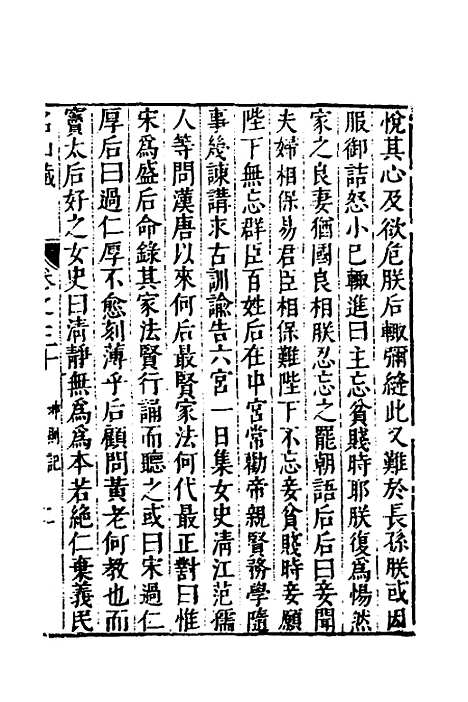 悅其心及欲危朕后輙彌縫此又難於長孫朕或因
服御詰怒小巳輙進曰主忘貧賤時耶朕復爲惕然
家之良妻猶國良相朕忍忘之罷朝語后后曰妾聞
夫婦相保易君臣相保難陛下不忘妾貧賤時妾願
陛下無忘群臣百姓后在中宮常勸帝親賢務學隨
事幾諫講求古訓諭告六宮一日集女史淸江范孺
人等問漢唐以來何后最賢家法何代最正對曰惟
宋爲盛后命錄其家法賢行誦而聽之或曰宋過仁
厚后曰過仁厚不愈刻薄乎后顧問黃老何教也而
竇太后好之女史曰淸靜無爲爲本若絶仁棄義民
名山藏 卷之三十 坤則記 二